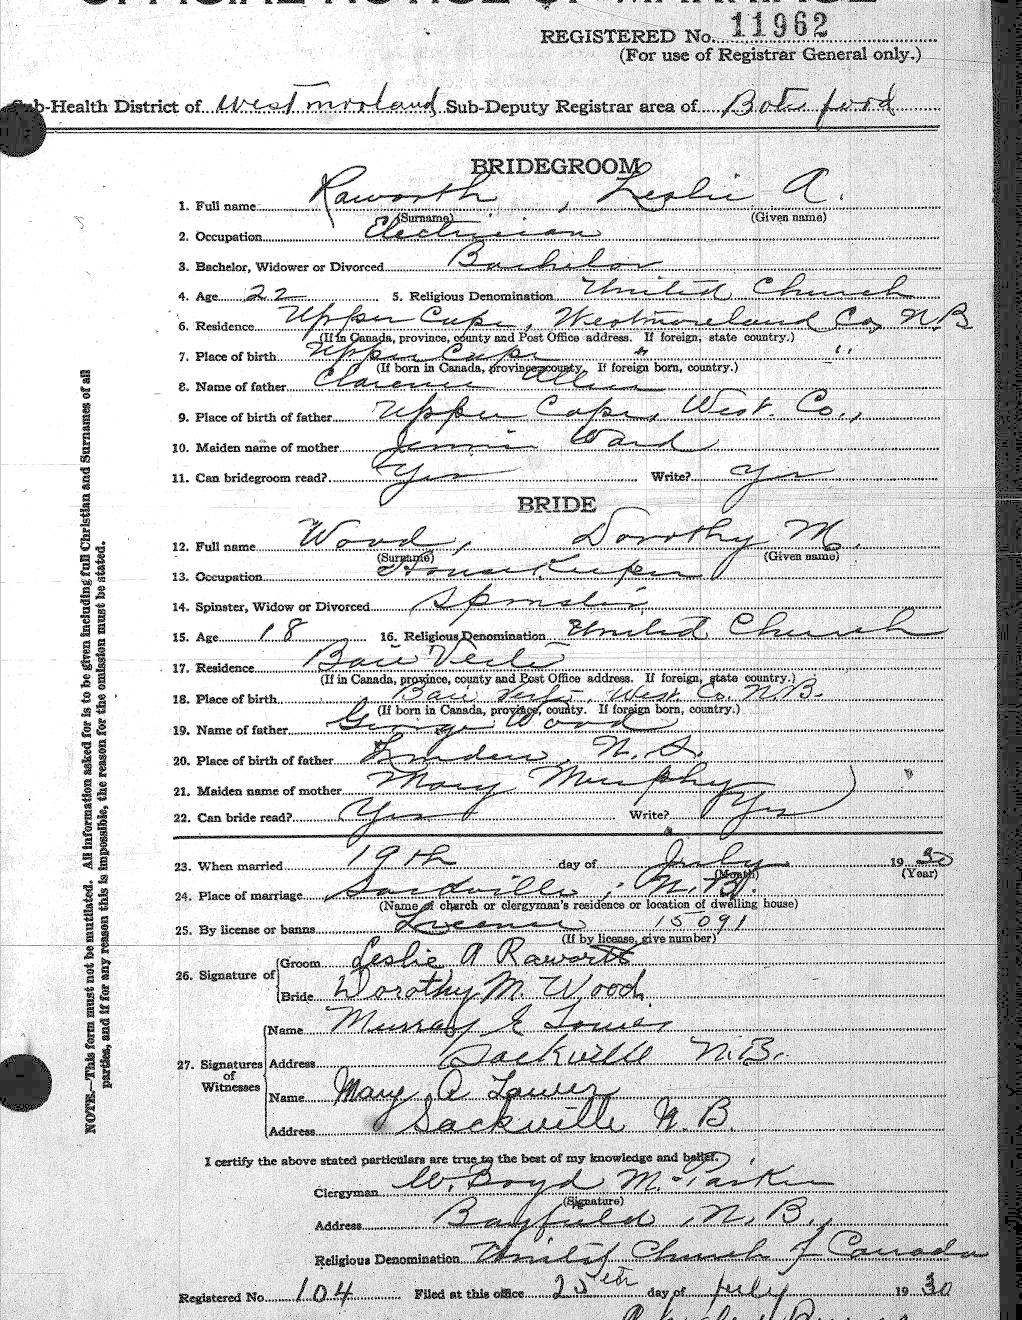 OFFICIAL NOTICE OF MARRIAGE
REGISTERED No. 11962
(For use of Registrar General only.)
Sub-Health District of Westmorland Sub-Deputy Registrar area of Botsford
BRIDEGROOM
1. Full name Raworth, Leslie A.
(Surname) (Given name)
2. Occupation Electrician
3. Bachelor, Widower or Divorced Bachelor
4. Age 22 5. Religious Denomination United Church
6. Residence Upper Cape, Westmoreland Co, N.B
(If in Canada, province, county and Post Office address. If foreign, state country.)
7. Place of birth Upper Cape " "
(If born in Canada, province, county. If foreign born, country.)
8. Name of father Clarence Allen
9. Place of birth of father Upper Cape, West. Co.,
10. Maiden name of mother Jennie Ward
11. Can bridegroom read? Yes Write? Yes
BRIDE
12. Full name Wood, Dorothy M.
(Surname) (Given name)
13. Occupation House Keeper
14. Spinster, Widow or Divorced Spinster
15. Age 18 16. Religious Denomination United Church
17. Residence Baie Verte
(If in Canada, province, county and Post Office address. If foreign, state country.)
18. Place of birth Baie Verte, West. Co. N.B.
(If born in Canada, province, county. If foreign born, country.)
19. Name of father George Wood
20. Place of birth of father Linden, N.S.
21. Maiden name of mother Mary Murphy
22. Can bride read? Yes Write? Yes
23. When married 19th day of July 1930
(Month) (Year)
24. Place of marriage Sackville, N.B.
(Name of church or clergyman's residence or location of dwelling house)
25. By license or banns License 15091
(If by license, give number)
26. Signature of Groom Leslie A Raworth
Bride Dorothy M. Wood.
27. Signatures of Witnesses
Name Murray E
Address Sackville N.B.
Name Mary A
Address Sackville N.B.
I certify the above stated particulars are true to the best of my knowledge and belief.
Clergyman W. Boyd McParker
(Signature)
Address Bayfield, N.B.,
Religious Denomination United Church of Canada
Registered No. 104 Filed at this office 25th day of July 1930
NOTE.—This form must not be mutilated. All information asked for is to be given including full Christian and Surnames of all
parties, and if for any reason this is impossible, the reason for the omission must be stated.